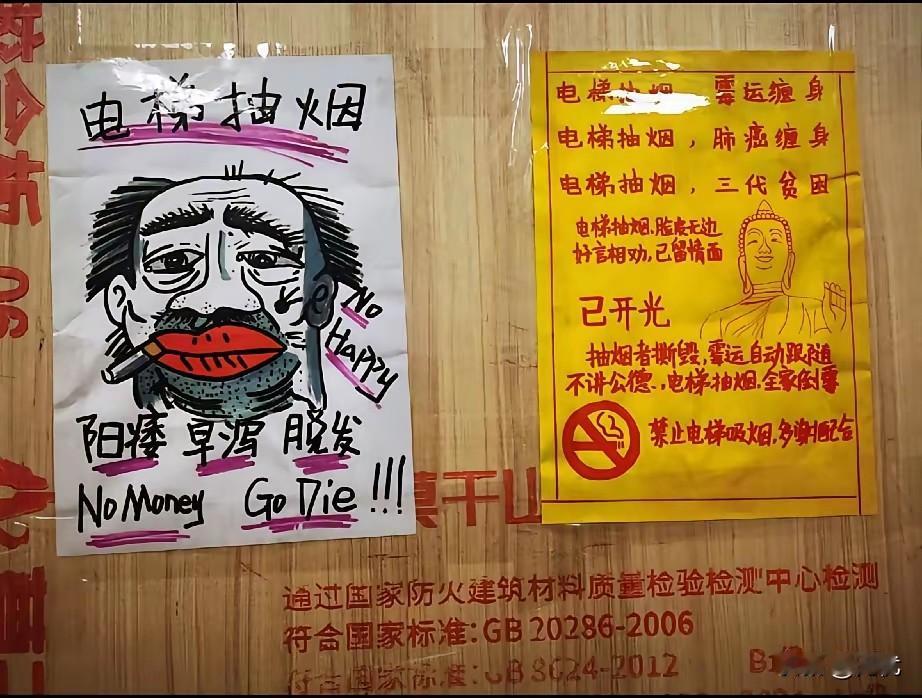 电梯抽烟
No
HAPPY
阳痿 早泻 脱发
No Money Go Die !!!
电梯抽烟，霉运缠身
电梯抽烟，肺癌缠身
电梯抽烟，三代贫困
电梯抽烟，脸皮无边
好言相劝，已留情面
已开光
抽烟者撕毁，霉运自动跟随
不讲公德，电梯抽烟，全家倒霉
禁止电梯吸烟，多谢配合
莫干山
通过国家防火建筑材料质量检验检测中心检测
符合国家标准：GB 20286-2006
符合国家标准：GB 8624-2012